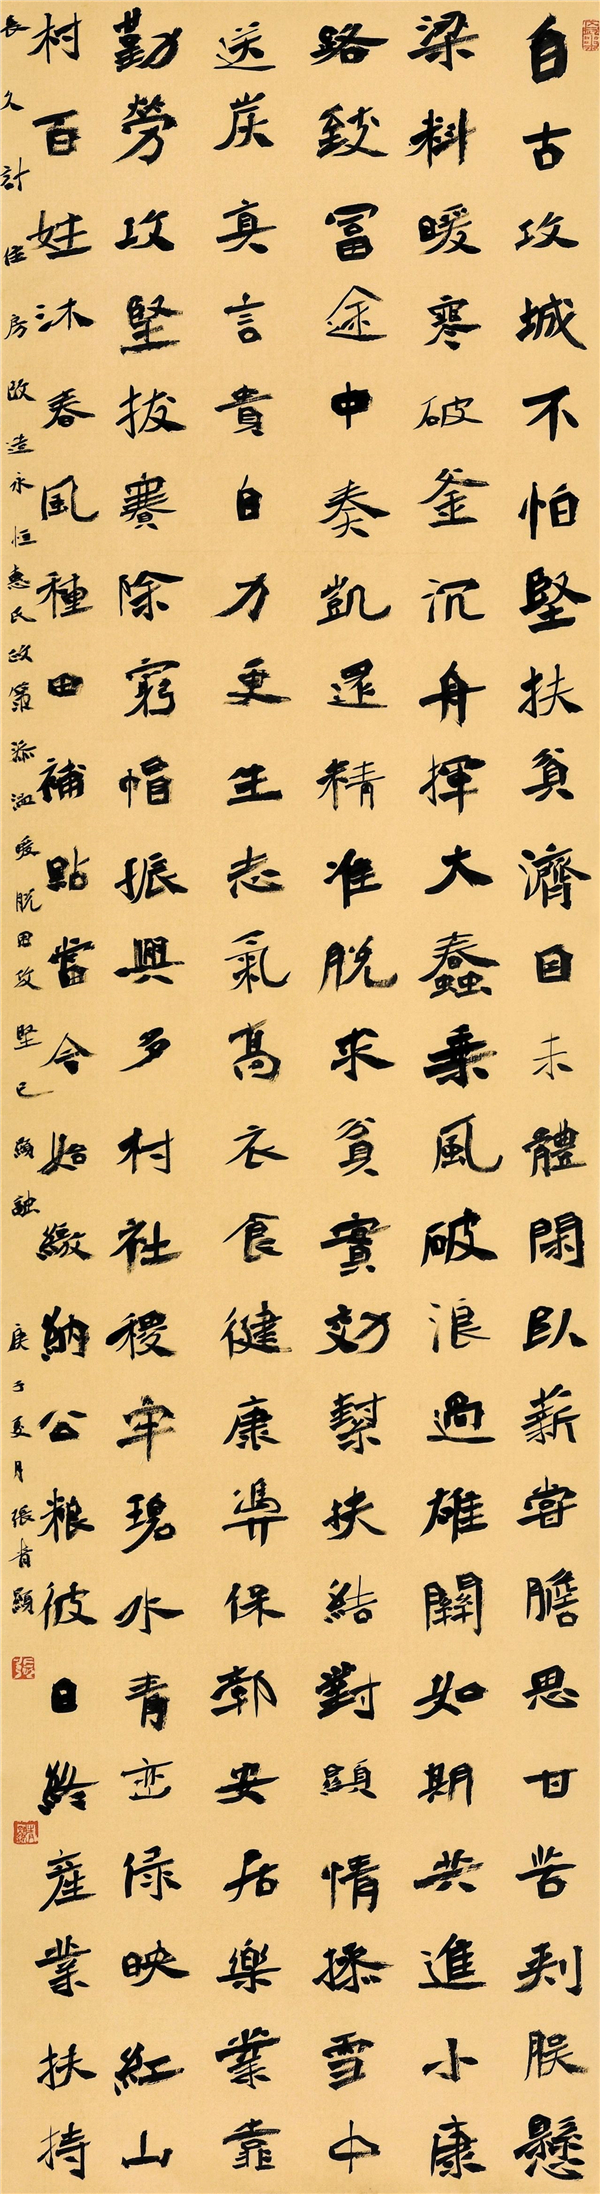 自古攻城不怕堅扶貧濟困未體閑臥薪嘗膽思甘苦刺股懸
梁料暖寒破釜沉舟揮大蠢乘風破浪過雄關如期共進小康
路致富途中奏凱還精准脫求貧實効幫扶結對顯情操雪中
送炭真言貴自力更生志氣高衣食健康算保郭安居樂業靠
勤勞攻堅拔寨除窮帽振興乡村社稷牢碧水青巒绿映紅山
村百姓沐春風種田補點當今始繳納公粮彼日終產業扶持
長久計住房改造永恒惠民政策添溫暖脫困攻堅已顯融
庚子夏月張青題